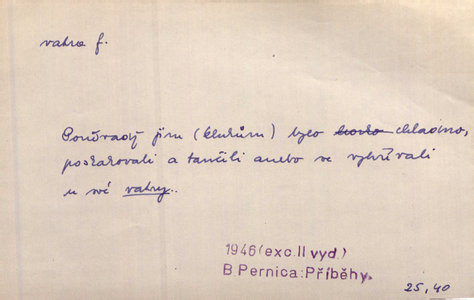 vatra f.
Poněvadž jim (klukům) bylo horko chladno,
poskakovali a tančili anebo se vyhřívali
u své vatry..
1946 (exc. II vyd.)
B. Pernica: Příběhy.
25,40